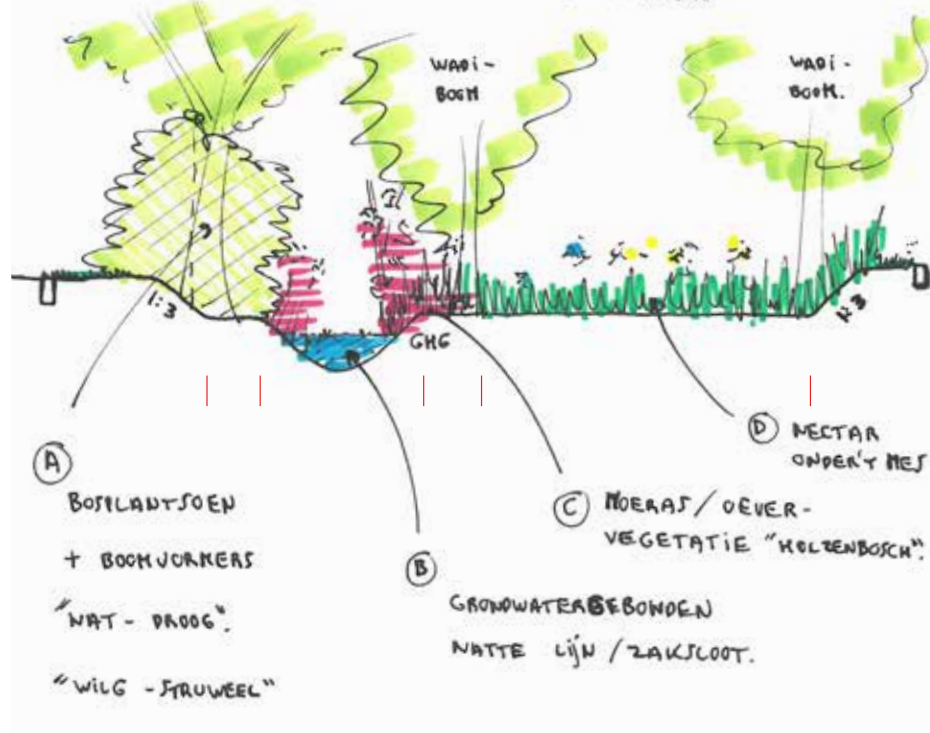 WADI-
BOOM
WADI-
BOOM.
1:3
GHG
1:3
A
BOSPLANTSOEN
+ BOOMVORMERS
"NAT - DROOG".
"WILG - STRUWEEL"
B
GRONDWATERGEBONDEN
NATTE LIJN / ZAKSLOOT.
C
MOERAS / OEVER-
VEGETATIE "MOLZENBOSCH".
D
NECTAR
ONDER'T MES